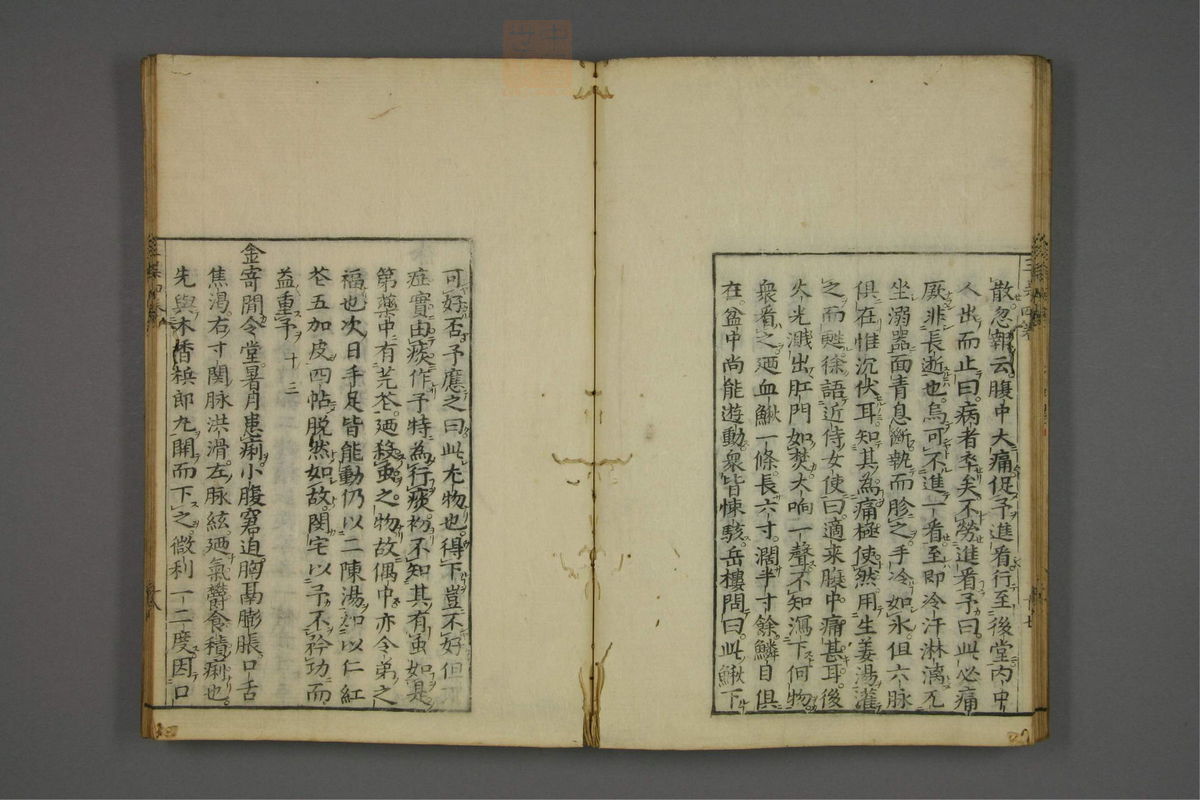 散忽報云腹中大痛促予進看行至後堂內中
人出而止曰病者卒矣不勞進看予曰此必痛
厥非長逝也烏可不進一看至即冷汗淋漓兀
坐溺器面青息斷執而胗之手冷如氷但六脉
俱在惟沉伏耳知其為痛極使然用生姜湯灌
之而甦徐語近侍女使曰適来腹中痛甚耳後
火光濺出肛門如焚大响一聲不知瀉下何物
衆看之廼血鰍一條長六寸濶半寸餘鱗目俱
在盆中尚能遊動衆皆悚駭岳樓問曰此鰍下
可好否予應之曰此尤物也得下豈不好但
症實由痰作予特為行痰初不知其有虫如是
第藥中有芫花廼殺虫之物故偶中亦令弟之
福也次日手足皆能動仍以二陳湯加以仁紅
花五加皮四帖脱然如故閔宅以予不矜功而
益重予 十三
金寄閒令堂暑月患痢小腹窘迫胸鬲膨脹口舌
焦渴右寸関脉洪滑左脉絃廼氣鬱食積痢也
先與木香梹郎丸開而下之微利一二度因口